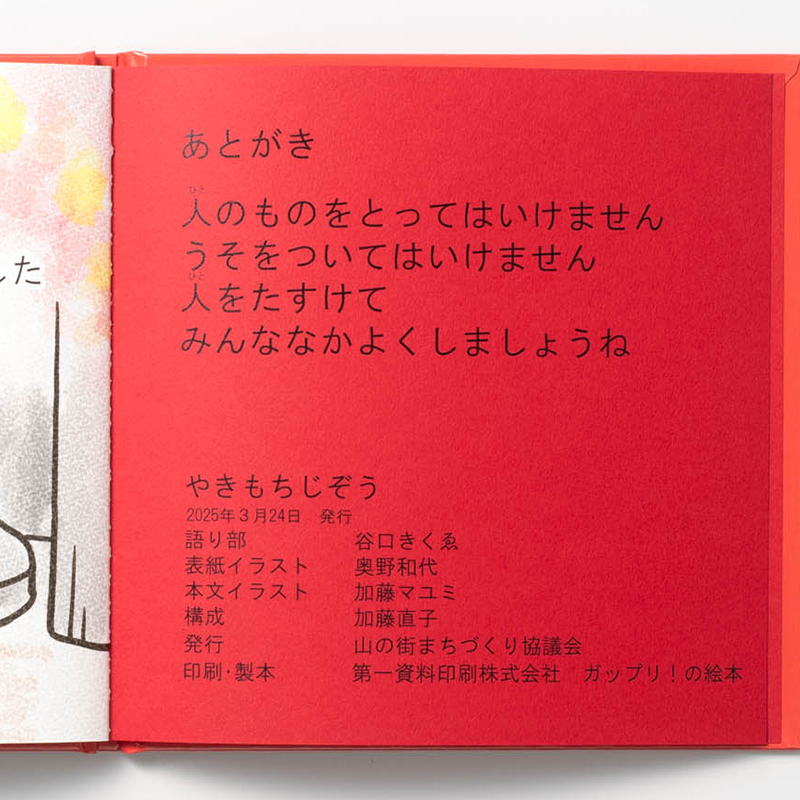 した
あとがき
人のものをとってはいけません
うそをついてはいけません
人をたすけて
みんななかよくしましょうね
やきもちじぞう
2025年3月24日　発行
語り部　谷口きくゑ
表紙イラスト　奥野和代
本文イラスト　加藤マユミ
構成　加藤直子
発行　山の街まちづくり協議会
印刷・製本　第一資料印刷株式会社　ガップリ！の絵本